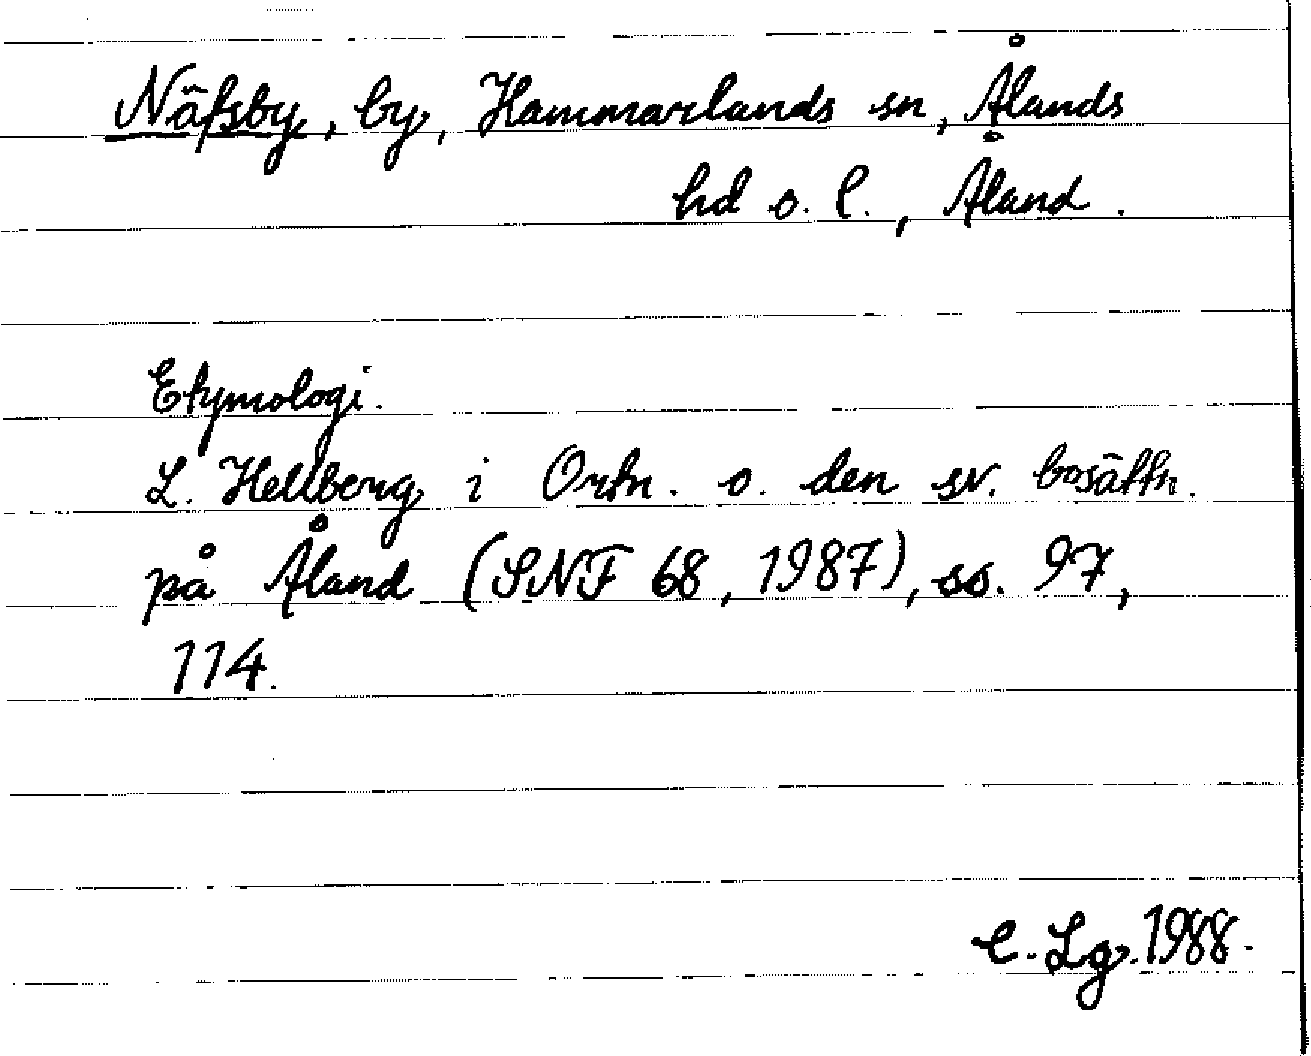 Näfsby, by, Hammarlands sn, Ålands
hd o. l., Åland.
Etymologi.
L. Hellberg i Ortn. o. den sv. bosättn.
på Åland (SNF 68, 1987), ss. 97,
114.
C. Lg. 1988.